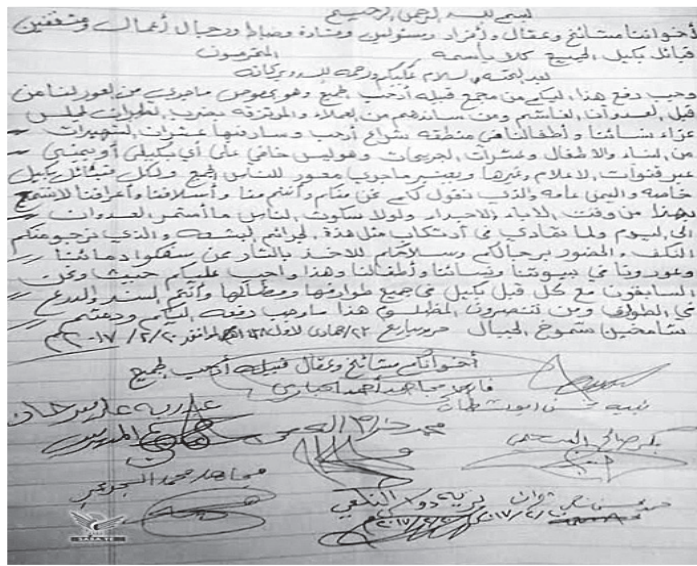 بسم الله الرحمن الرحيم
أخواننا مشائخ وعقال وأفراد ومسئولين وقادة وضباط ورجال أعمال ومثقفين
قبائل بكيل الجميع كلا بأسمه المحترمون
بعد التحيه السلام عليكم ورحمة الله وبركاته
وجب دفع هذا إليكم من مجمع قبيله أرحب الجميع وهو بخصوص ماجرى من العور لنا من
قبل العدوان الغاشم ومن ساندهم من العملاء والمرتزقه بضرب الطيران لمجلس
عزاء نسائنا وأطفالنا في منطقه شراع أرحب وسار فيها عشرات الشهيدات
من النساء والاطفال وعشرات الجريحات وهو ليس خافي على أي بكيلي أو يمني
عبر قنوات الاعلام وغيرها ويعتبر ماجرى معور للناس الجميع ولكل قبائل بكيل
خاصه واليمن عامه والذي نقول لكم نحن منكم وأنتم منا وأسلافنا وأعرافنا لا تسمح
بهذا من وقت الاباء والاجداد ولولا سكوت الناس ما أستمر العدوان
الى اليوم ولما تمادي في أرتكاب مثل هذة الجرائم البشعه والذي نرجو منكم
النكف والحضور برجالكم وسلاحكم للاخذ بالثأر ممن سفكوا دمائنا
وعورونا في بيوتنا ونسائنا وأطفالنا وهذا واجب عليكم حيث ونحن
السابقون مع كل قبل بكيل في جميع طوارفها ومطالبها وأنتم السند والدرع
في الطوارف ومن تنصرون المظلوم هذا ما وجب دفعه إليكم ودمتم
شامخين شموخ الجبال حرر بتاريخ ٢٣/جمادي الاول/١٤٣٨هـ الموافق ٢٠/٢/٢٠١٧م
أخوانكم مشائخ وعقال قبيله أرحب الجميع
فارس مجاهد أحمد الحباري
محمد
بكر صالح
مجاهد محمد
نزيه
٢٠١٧/٢/٢٠
SABA.YE